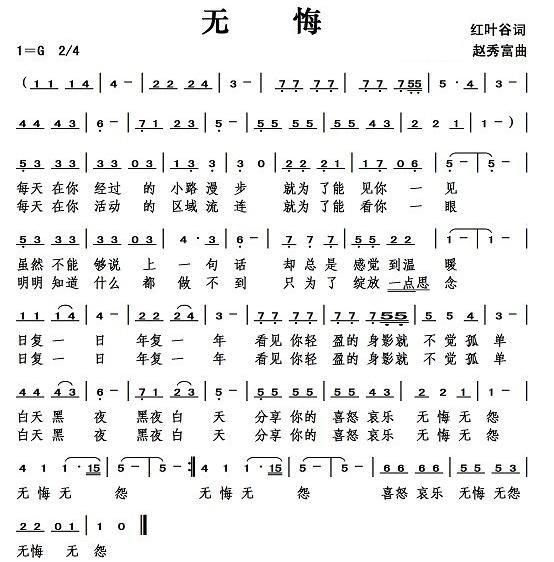 无 悔
红叶谷词
1=G 2/4
赵秀富曲
( 11 14 | 4 - | 22 24 | 3 - | 77 77 | 77 755 | 5 · 4 | 3 - |
44 43 | 6 - | 71 23 | 3 - | 55 55 | 55 43 | 22 1 | 1 - )
53 33 | 33 03 | 13 31 | 3 0 | 22 21 | 17 06 | 5 - | 5 - |
每天 在你 经过 的 小路 漫 步 就为 了能 见你 一 见
每天 在你 活动 的 区域 流 连 就为 了能 看你 一 眼
53 33 | 33 03 | 4 · 3 | 6 - | 77 7 | 55 22 | 1 - | 1 - |
虽然 不能 够说 上 一 句 话 却 总 是 感觉 到温 暖
明明 知道 什么 都 做 不 到 只 为 了 绽放 一点思 念
11 14 | 4 - | 22 24 | 3 - | 77 77 | 77 755 | 55 43 | 3 - |
日复 一 日 年复 一 年 看见 你轻 盈的 身影就 不 觉 孤 单
日复 一 日 年复 一 年 看见 你轻 盈的 身影就 不 觉 孤 单
44 43 | 6 - | 71 23 | 3 - | 55 55 | 55 43 | 22 1 | 1 - |
白天 黑 夜 黑夜 白 天 分享 你的 喜怒 哀乐 无悔 无 怨
白天 黑 夜 黑夜 白 天 分享 你的 喜怒 哀乐 无悔 无 怨
4 1 | 1 · 15 | 5 - | 5 - :| 4 1 | 1 · 15 | 5 - | 5 - | 66 66 | 55 55 |
无 悔 无 怨 无 悔 无 怨 喜怒 哀乐 无悔 无怨
22 01 | 1 0 ‖
无悔 无 怨